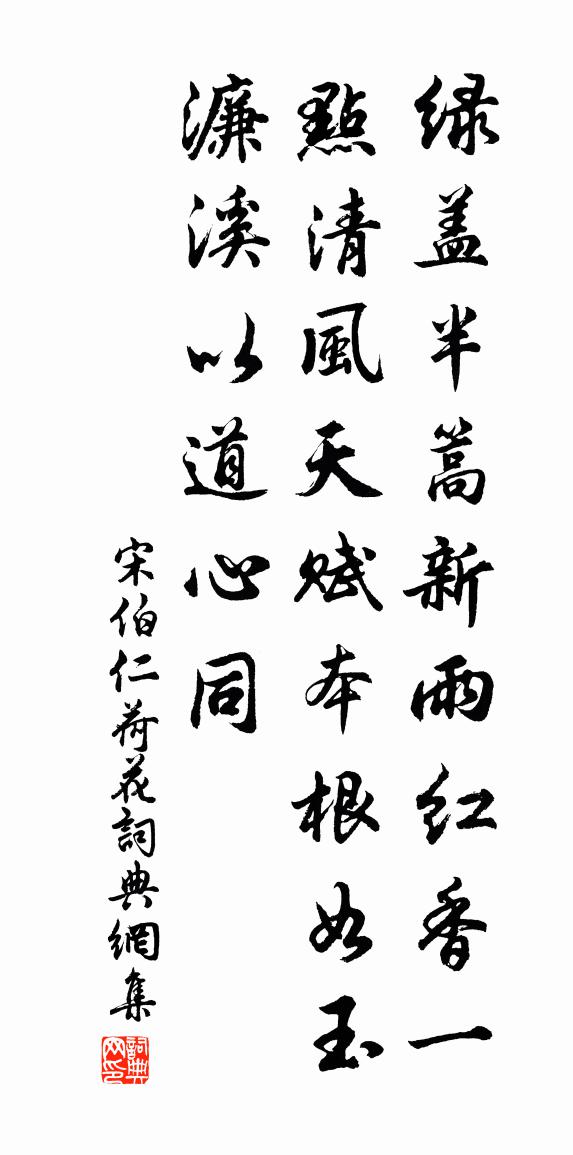 绿盖半篙新雨红香一
點清風天赋本根如玉
濂溪以道心同
宋伯仁荷花詞典網集
詞典网印